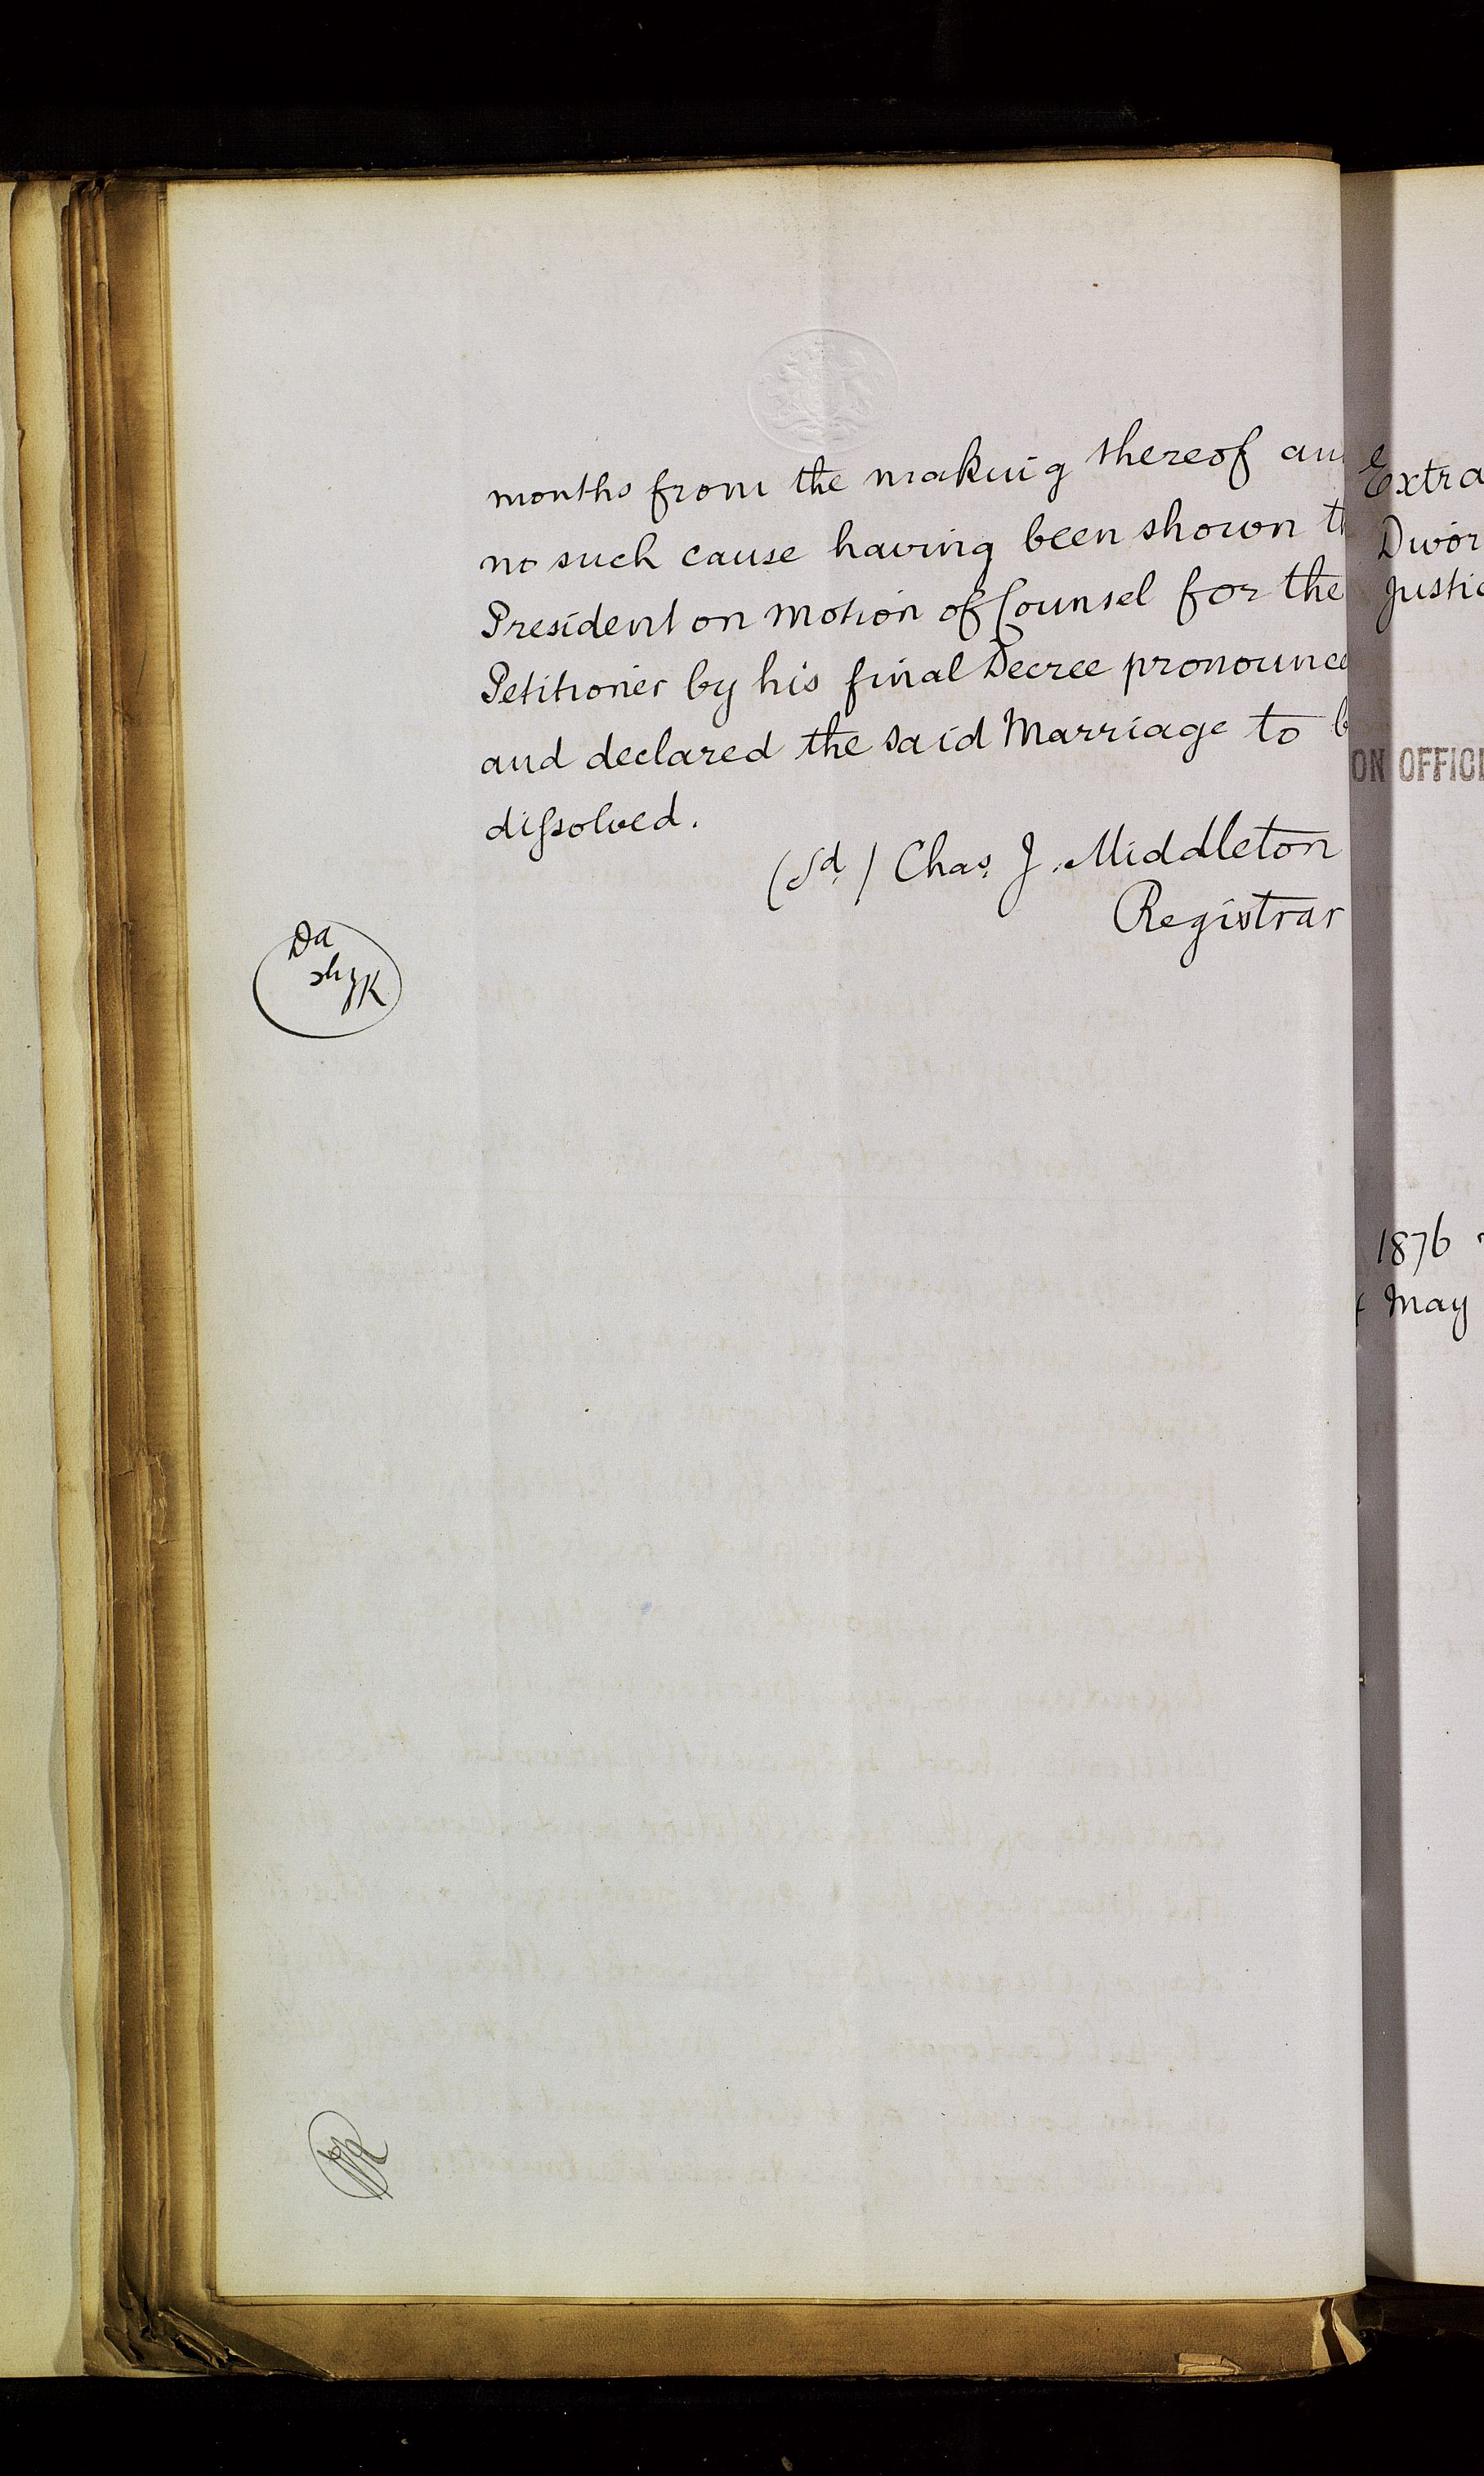 months from the making thereof an
no such cause having been shown th
President on motion of Counsel for the
Petitioner by his final Decree pronounce
and declared the said Marriage to b
diſsolved.
(Sd.) Chas. J. Middleton
Registrar
Extra
Divor
Justic
ON OFFICI
1876
May